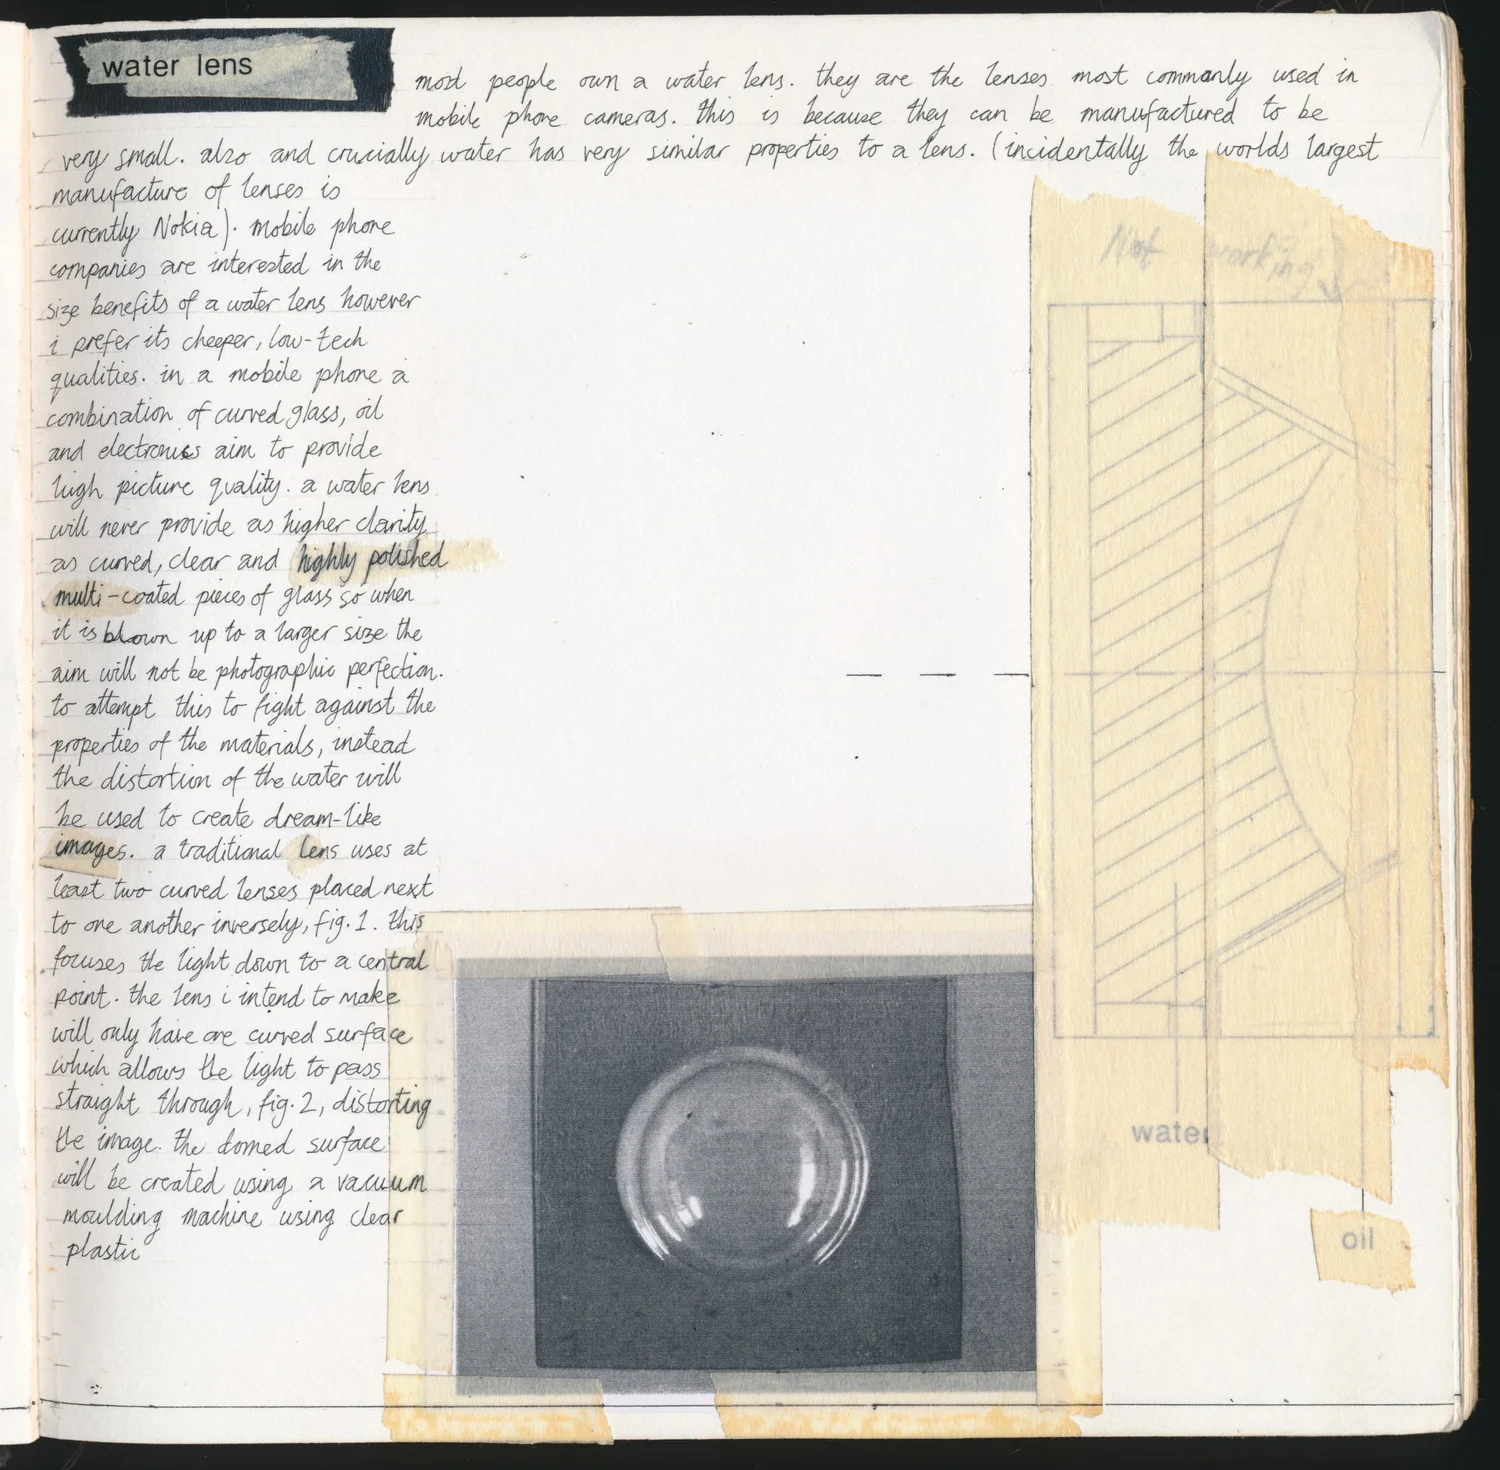 water lens
most people own a water lens. they are the lenses most commonly used in
mobile phone cameras. this is because they can be manufactured to be
very small. also and crucially water has very similar properties to a lens. (incidentally the worlds largest
manufacture of lenses is
currently Nokia). mobile phone
companies are interested in the
size benefits of a water lens however
i prefer its cheeper, low-tech
qualities. in a mobile phone a
combination of curved glass, oil
and electronics aim to provide
high picture quality. a water lens
will never provide as higher clarity
as curved, clear and highly polished
multi-coated pieces of glass so when
it is blown up to a larger size the
aim will not be photographic perfection.
to attempt this to fight against the
properties of the materials, instead
the distortion of the water will
be used to create dream-like
images. a traditional lens uses at
least two curved lenses placed next
to one another inversely, fig. 1. this
focuses the light down to a central
point. the lens i intend to make
will only have one curved surface
which allows the light to pass
straight through, fig. 2, distorting
the image. the domed surface
will be created using a vacuum
moulding machine using clear
plastic
Not working
water
oil